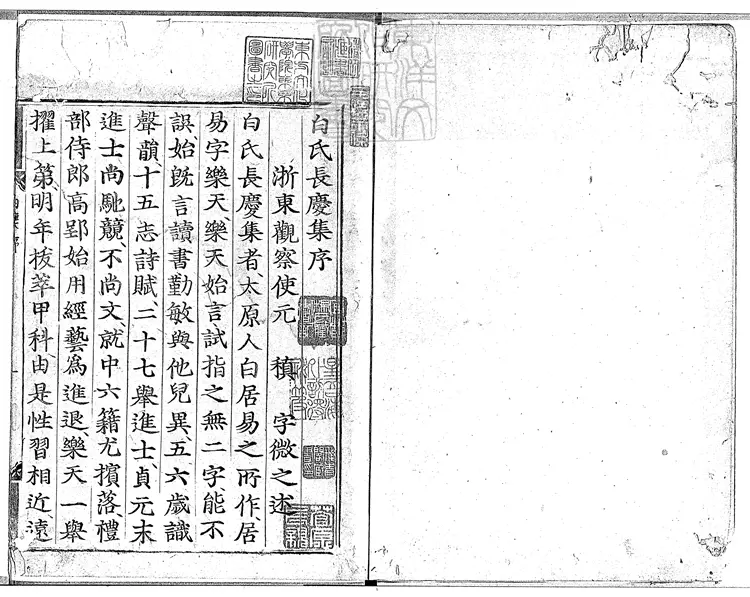 白氏長慶集序
浙東觀察使元　稹　字微之述
白氏長慶集者、太原人白居易之所作、居
易字樂天、樂天始言、試指之無二字、能不
誤、始既言、讀書勤敏、與他兒異、五六歲識
聲韻、十五志詩賦、二十七舉進士、貞元末
進士尚馳競、不尚文、就中六籍尤擯落、禮
部侍郎高郢始用經藝爲進退、樂天一舉
擢上第、明年拔萃甲科、由是性習相近遠